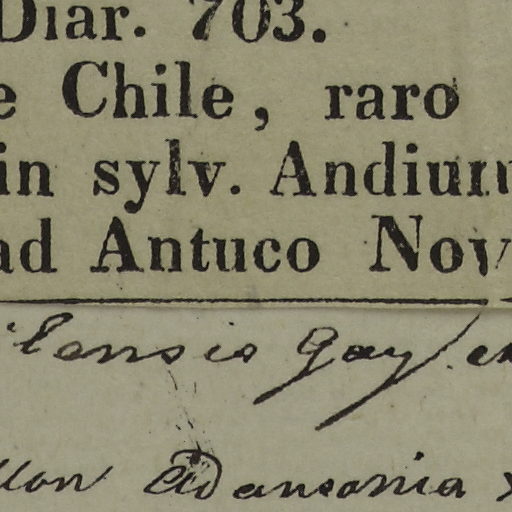 Diar. 703.
e Chile, raro
in sylv. Andium
ad Antuco Nov
ilensis Gay ex
llon Adansonia